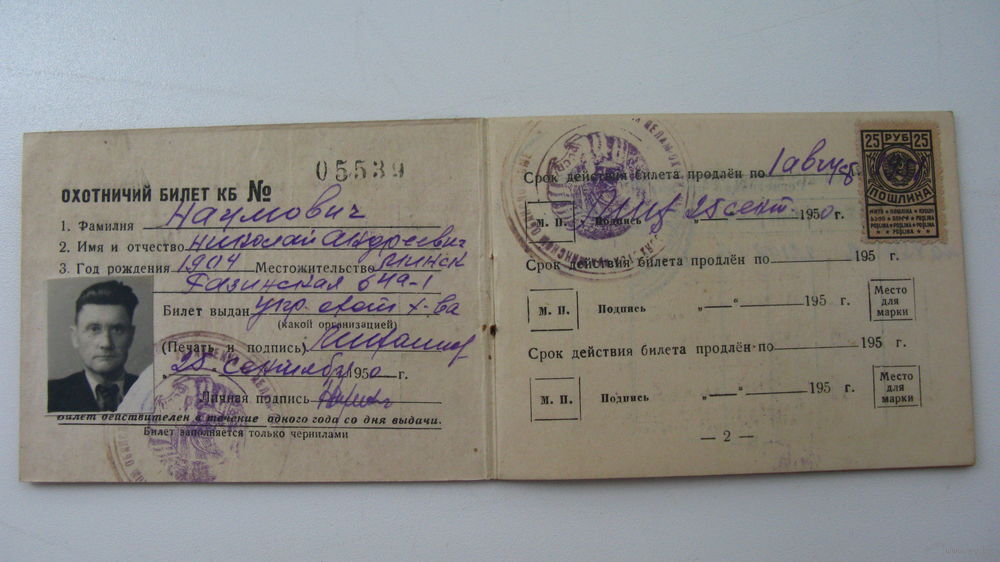 05539
ОХОТНИЧИЙ БИЛЕТ КБ №
1. Фамилия Наумович
2. Имя и отчество Николай Андреевич
3. Год рождения 1904 Местожительство Минск
54а-1
Билет выдан упр. охот х-ва
(какой организацией)
(Печать и подпись)
"25" сентября 1950 г.
Личная подпись
Билет действителен в течение одного года со дня выдачи.
Билет заполняется только чернилами
Срок действия билета продлён по 1 август
М. П. Подпись 25 сент 1950 г.
Срок действия билета продлён по 195 г.
М. П. Подпись „ “ 195 г.
Место для марки
Срок действия билета продлён по 195 г.
М. П. Подпись „ “ 195 г.
Место для марки
— 2 —
25 РУБ 25
ПОШЛИНА